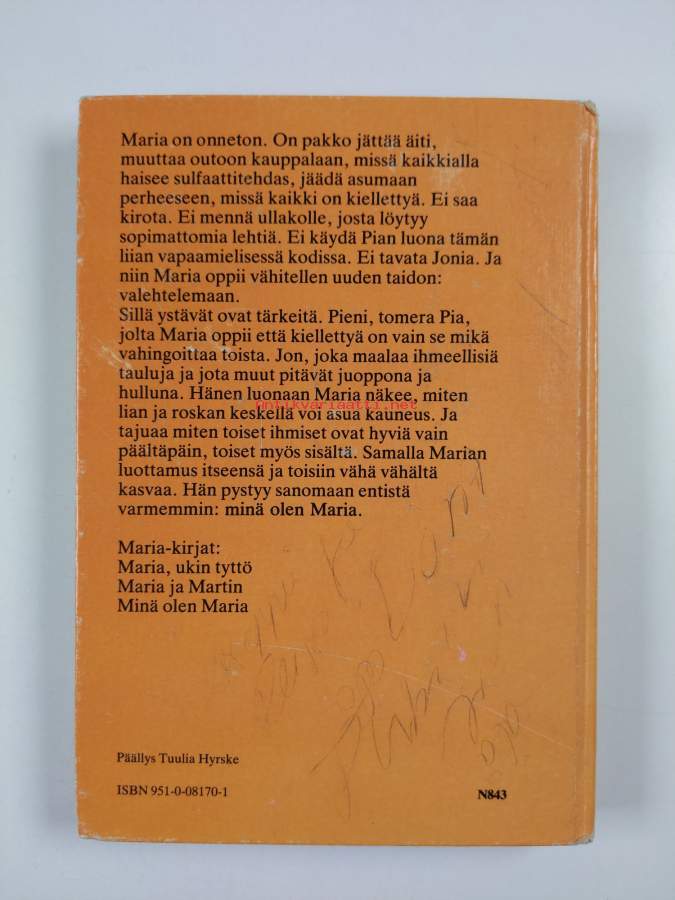 Maria on onneton. On pakko jättää äiti,
muuttaa outoon kauppalaan, missä kaikkialla
haisee sulfaattitehdas, jäädä asumaan
perheeseen, missä kaikki on kiellettyä. Ei saa
kirota. Ei mennä ullakolle, josta löytyy
sopimattomia lehtiä. Ei käydä Pian luona tämän
liian vapaamielisessä kodissa. Ei tavata Jonia. Ja
niin Maria oppii vähitellen uuden taidon:
valehtelemaan.
Sillä ystävät ovat tärkeitä. Pieni, tomera Pia,
jolta Maria oppii että kiellettyä on vain se mikä
vahingoittaa toista. Jon, joka maalaa ihmeellisiä
tauluja ja jota muut pitävät juoppona ja
hulluna. Hänen luonaan Maria näkee, miten
antikvariaatti.net
lian ja roskan keskellä voi asua kauneus. Ja
tajuaa miten toiset ihmiset ovat hyviä vain
päältäpäin, toiset myös sisältä. Samalla Marian
luottamus itseensä ja toisiin vähä vähältä
kasvaa. Hän pystyy sanomaan entistä
varmemmin: minä olen Maria.
Maria-kirjat:
Maria, ukin tyttö
Maria ja Martin
Minä olen Maria
Päällys Tuulia Hyrske
ISBN 951-0-08170-1
N843